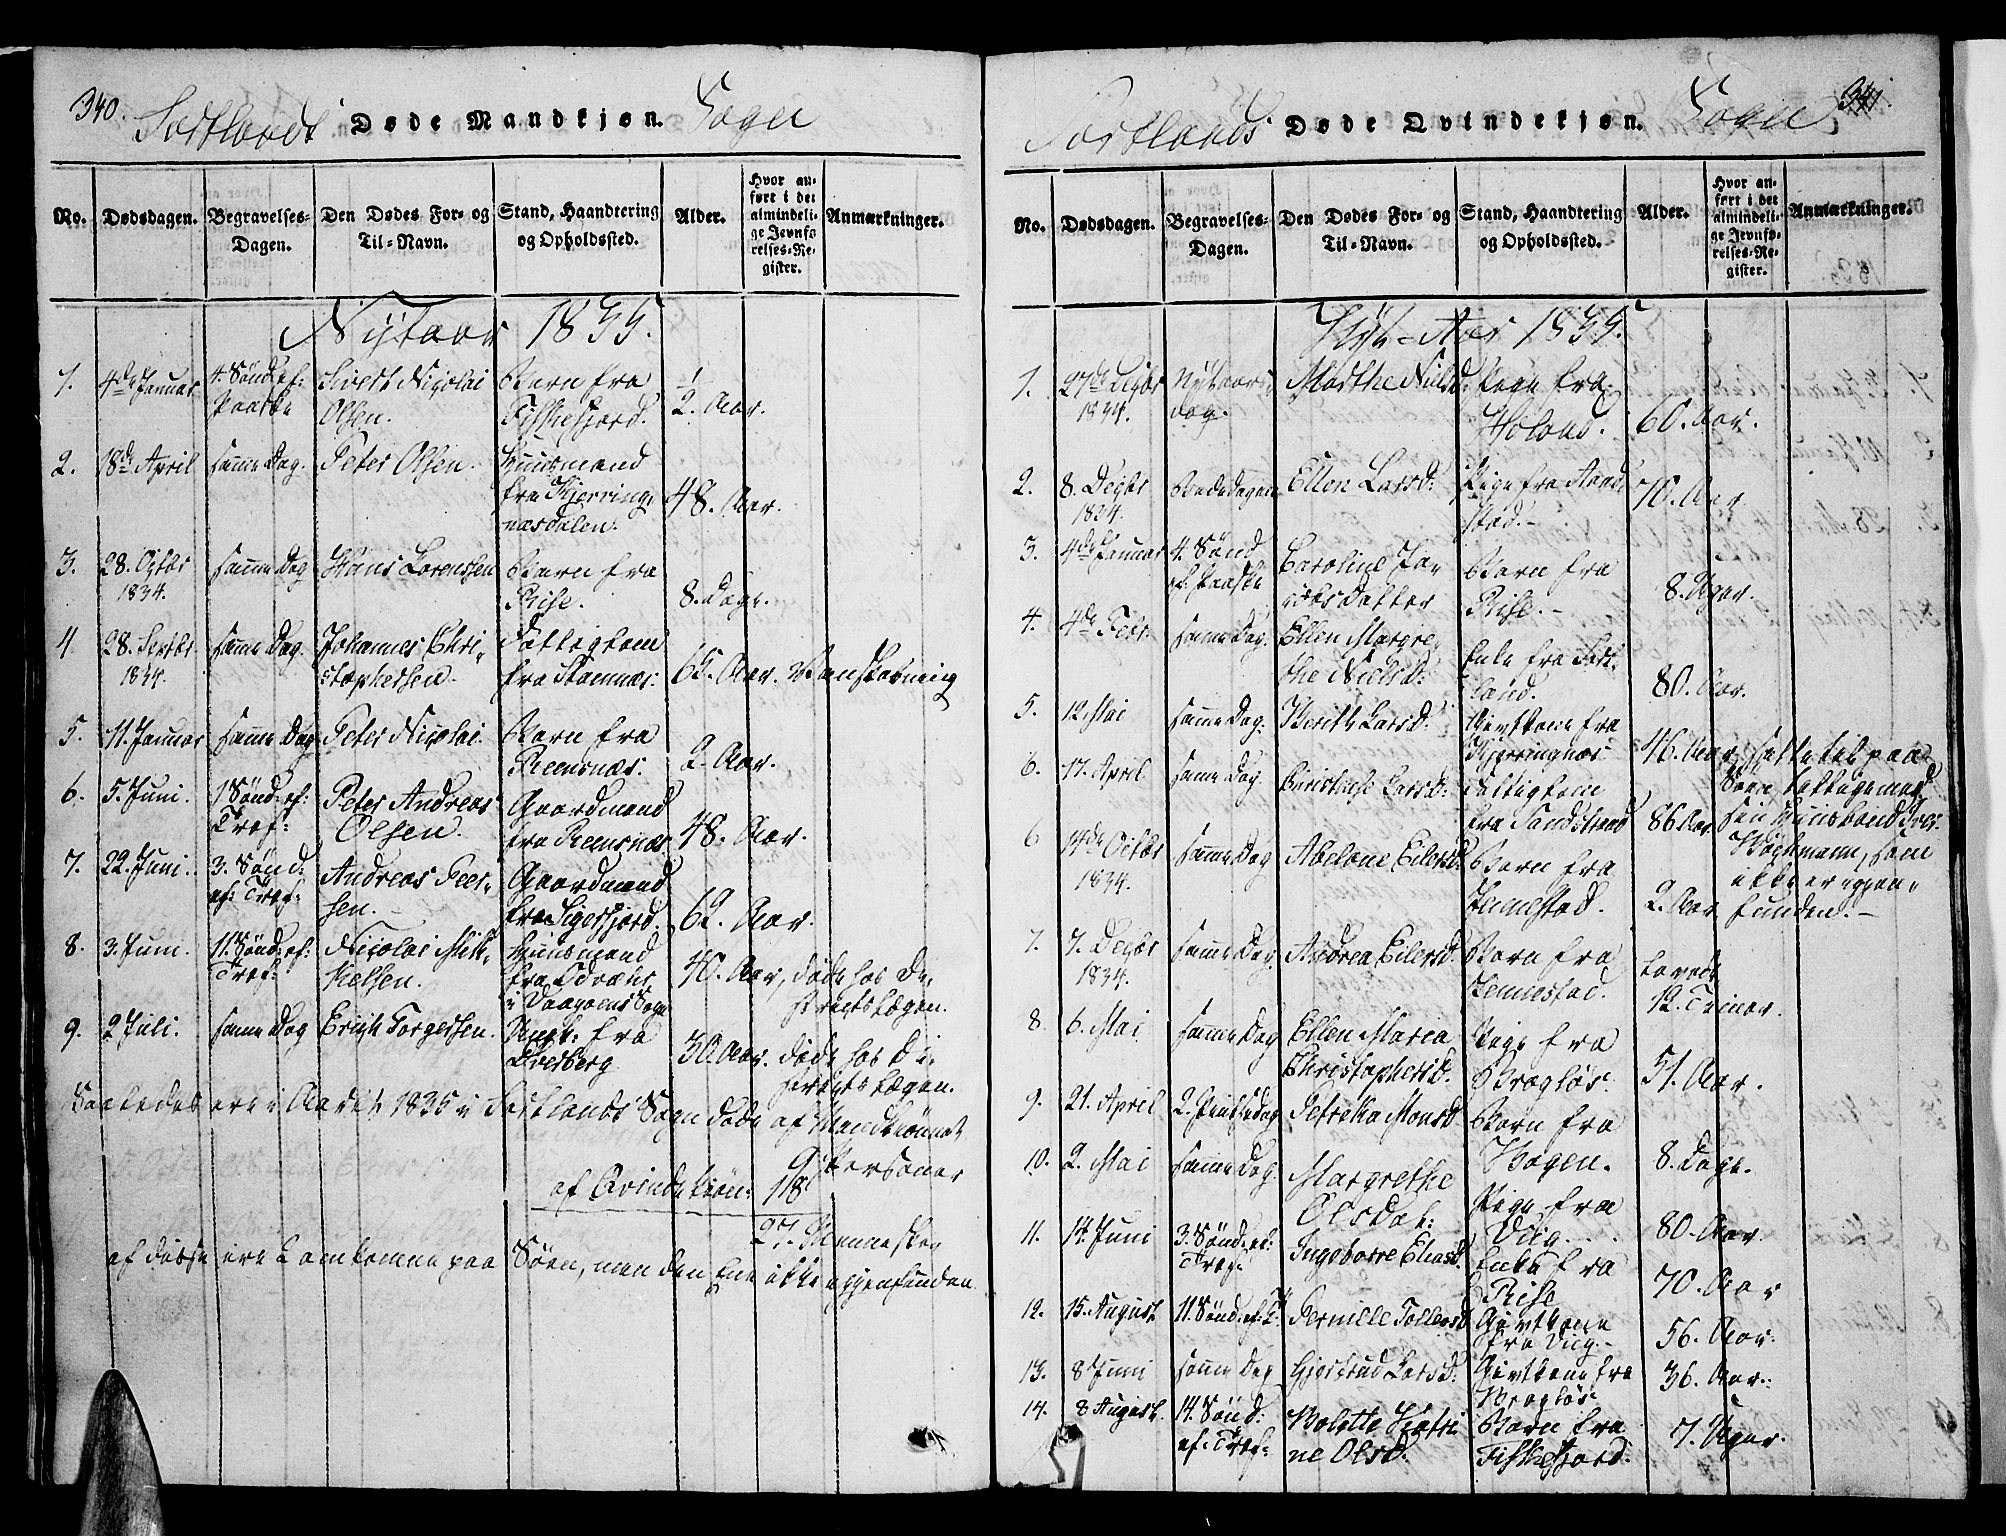 340. Sortlands Døde Mandkjøn. Sogn
No. Dødsdagen. Begravelses-Dagen. Den Dødes For- og Til-Navn. Stand, Haandtering og Opholdssted. Alder. Hvor anført i det almindelige Jevnførelses-Register. Anmærkninger.
Nytaar 1835.
1. 4de Januar 4. Sønd: ef: Paaske Sivert Nicolai Olsen. Barn fra Fiskefjord. 1/2 Aar.
2. 18de April samme Dag. Peter Olsen. Huusmand fra Kjerringnæsdalen. 48. Aar.
3. 28. Octbr 1834. samme Dag Hans Lorenssen Barn fra Rise. 8. Dage.
4 28. Septbr. 1834. samme Dag. Johannes Christophersen. Fattiglem fra Stamnæs. 65. Aar. Vanskabning
5. 11. Januar samme Dag Peter Nicolai. Barn fra Reensnæs. 2. Aar.
6. 5. Juni. 1 Sønd: ef: Tref: Peter Andreas Olsen. Gaardmand fra Reensnæs 48. Aar.
7. 22. Juni. 3. Sønd: ef: Tref: Andreas Peersen. Gaardmand fra Sigerfjord. 62. Aar.
8. 3. Juni. 11. Sønd: ef: Tref: Nicolai Mikkelsen. Huusmand fra i Vaagens Sogn 40. Aar, døde hos Districtslægen.
9. 2 Juli. samme Dag Erich Torgersen. Ungk: fra Qvesberg 30. Aar. døde hos Districtslægen.
Saaledes ere i Aaret 1835 i Sortlands Sogn døde af Mandkiønnet
9 Personer
af Qvindekiøn: 18
27. Mennesker
af disse ere 2 omkomne paa Søen, men den Ene ikke igjenfunden
Sortlands Døde Qvindekjøn. Sogn 341.
No. Dødsdagen. Begravelses-Dagen. Den Dødes For- og Til-Navn. Stand, Haandtering og Opholdssted. Alder. Hvor anført i det almindelige Jevnførelses-Register. Anmærkninger.
Aar 1835.
1. 27de Decbr 1834. Nytaarsdag. Marthe Nielsd: Pige fra Holand. 60. Aar.
2. 8. Decbr 1834. Bededagen Ellen Larsd: Pige fra stad. 70. Aar
3. 4de Januar 4. Sønd ef. Paaske Caroline Jacobsdatter Barn fra Rise. 8. Uger.
4. 4de Febr. samme Dag. Ellen Margrethe Nielsd: Enke fra Sortland. 80. Aar.
5. 12. Mai samme Dag: Berith Larsd: Givtkone fra Kjerringnæs 46. Aar satte til paa Søen tilligemed sin Huusbond Bochmann, som ikke er igjenfunden.
6. 17. April samme Dag Christense Larsd: Fattiglem fra Sandstrand 86 Aar
6 14de Octbr 1834. samme Dag Abelone Eilersd: Barn fra Jennestad. 2. Aar
7. 7. Decbr 1834. samme Dag. Andrea Eilersd: Barn fra Jennestad. levede 12. Timer.
8. 6. Mai samme Dag Ellen Maria Christophersd. Pige fra Brogløs 51. Aar.
9. 21. April 2. Pintsedag Petrikka Monsd. Barn fra Bogen. 8. Dage.
10. 2. Mai samme Dag. Margrethe Olsdat: Pige fra Viig. 80. Aar
11. 14. Juni 3. Sønd: ef: Tref: Ingeborre Eliasd. Enke fra Rise 70. Aar
12. 15. August. 11 Sønd: ef: T: Pernille Tollersd. Givtkone fra Viig. 56. Aar.
13. 8 Juni samme Dag Gjertrud Larsd: Givtkone fra Brogløs 36. Aar.
14. 8 August. 14. Sønd: ef: Tref: Bolette Olsd. Barn fra Fiskefjord. 7. Uger.